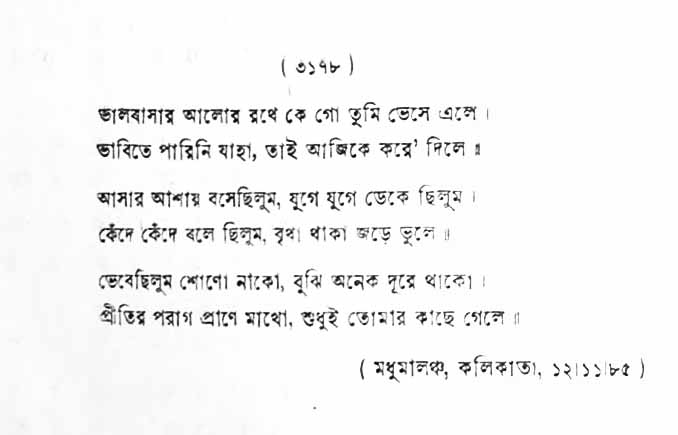 ( ৩১৭৮ )
ভালবাসার আলোর রথে কে গো তুমি ভেসে এলে ।
ভাবিতে পারিনি যাহা, তাই আজিকে করে' দিলে ॥
আসার আশায় বসেছিলুম, যুগে যুগে ডেকে ছিলুম ।
কেঁদে কেঁদে বলে ছিলুম, বৃথা থাকা জড়ে ভুলে ॥
ভেবেছিলুম শোণো নাকো, বুঝি অনেক দূরে থাকো ।
প্রীতির পরাগ প্রাণে মাখো, শুধুই তোমার কাছে গেলে ॥
( মধুমালঞ্চ, কলিকাতা, ১২।১১।৮৫ )